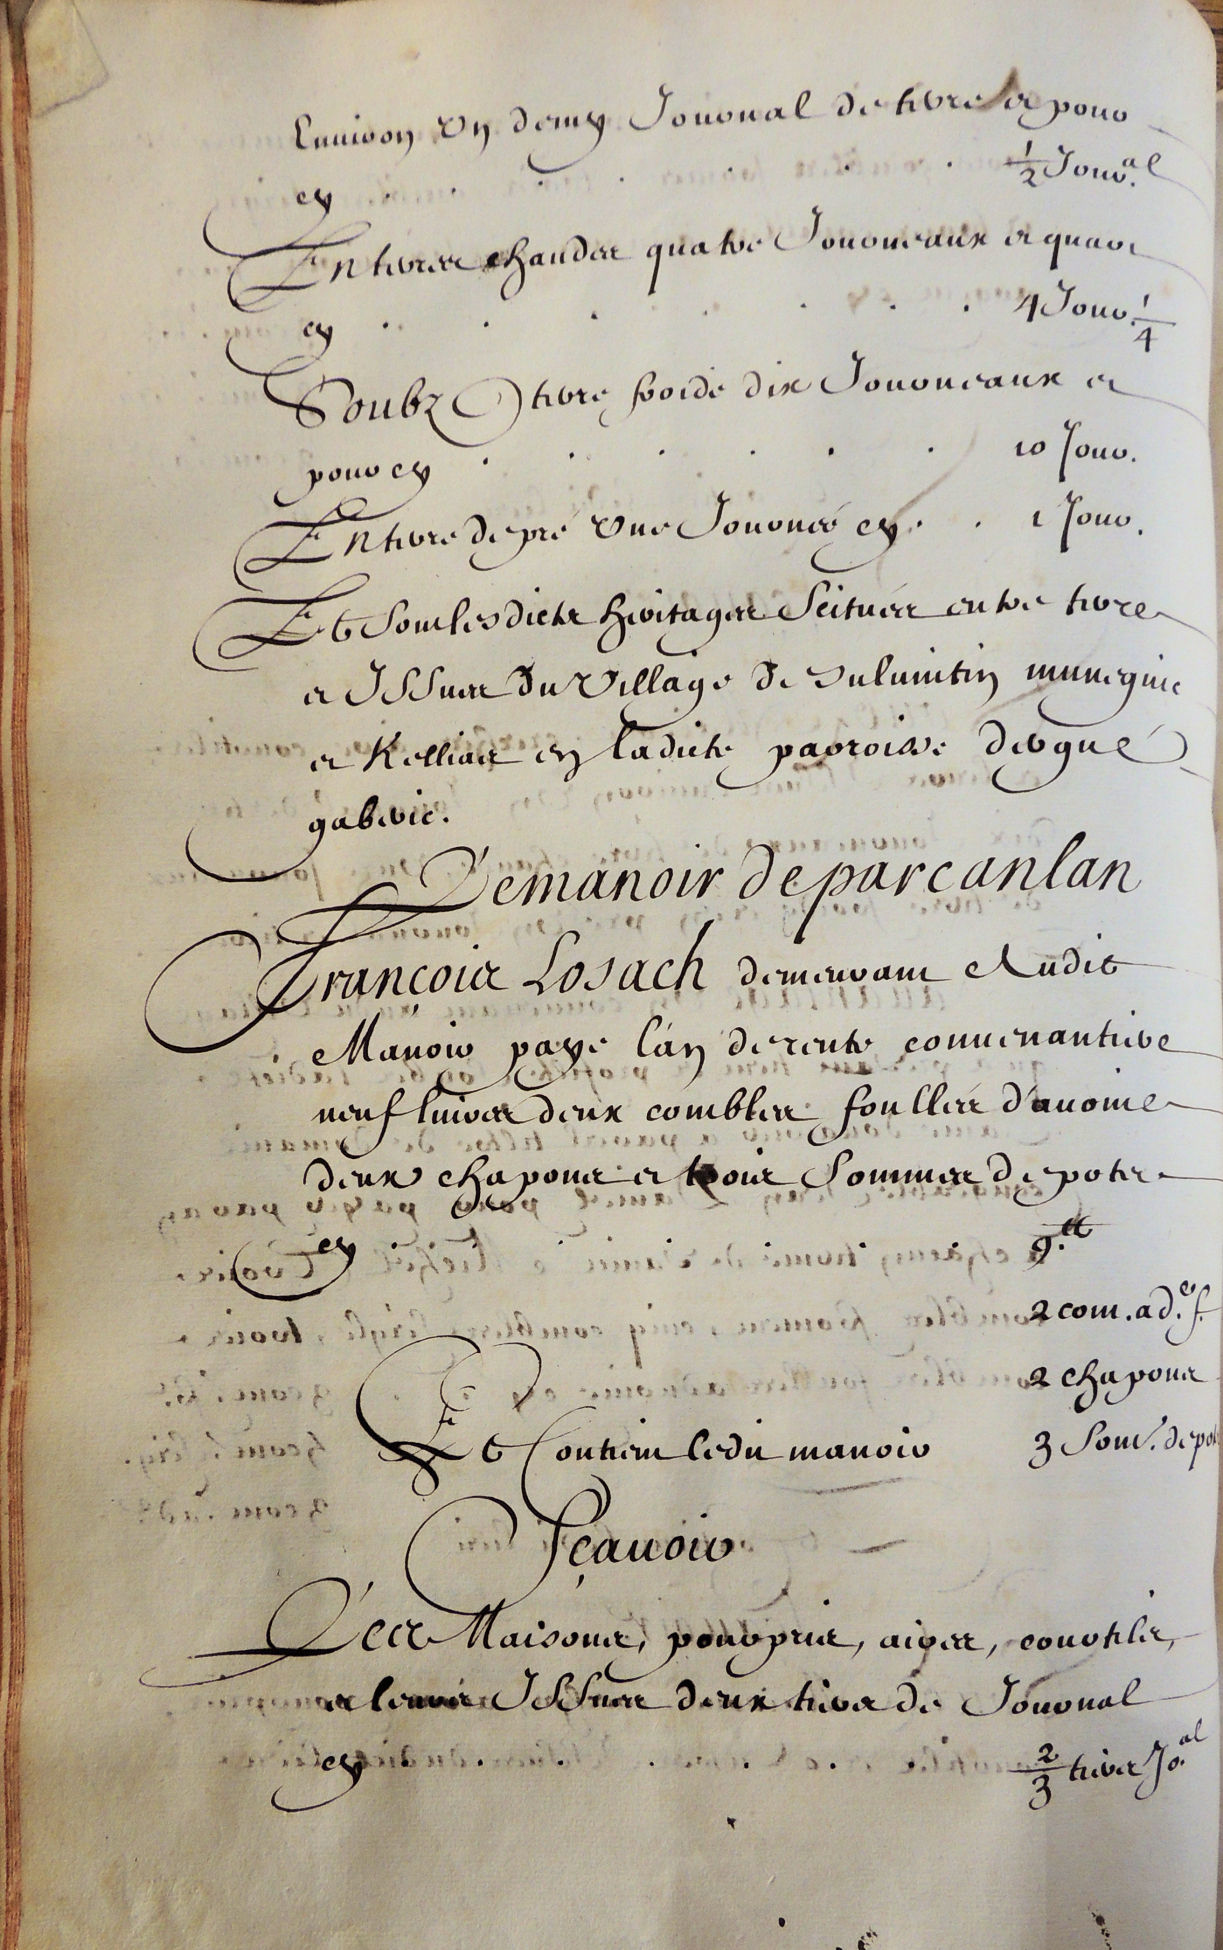 Environ un demy Journal de terre et pour
cy . . . . . . ½ Jour.al
En terres chaudes quatre Journeaux et quart
cy . . . . . . 4 Jour. ¼
Soubz terre froide dix Journeaux et
pour cy . . . . . . 10 Jour.
En terre de pré une Journée cy . . 1 Jour.
Et sont lesdicts heritages scitués entre terres
et Issues du Village de
et Kellias en ladicte parroisse d'ergué
gaberic.
Le manoir de parcanlan
François Losach demeurant Audit
Manoir paye l'an de rente convenantiere
neuf livres deux combles foullés d'avoine
deux chapons et trois sommes de potz
cy 9.tt
2 com. ad.e f.
2 chapons
Et Contient ledit manoir 3 Som. de pot
Sçavoir
Les Maisons, pourpris, aires, courtils,
et leurs Issues deux tiers de Journal
cy . . . . . . ⅔ tiers Jo.al